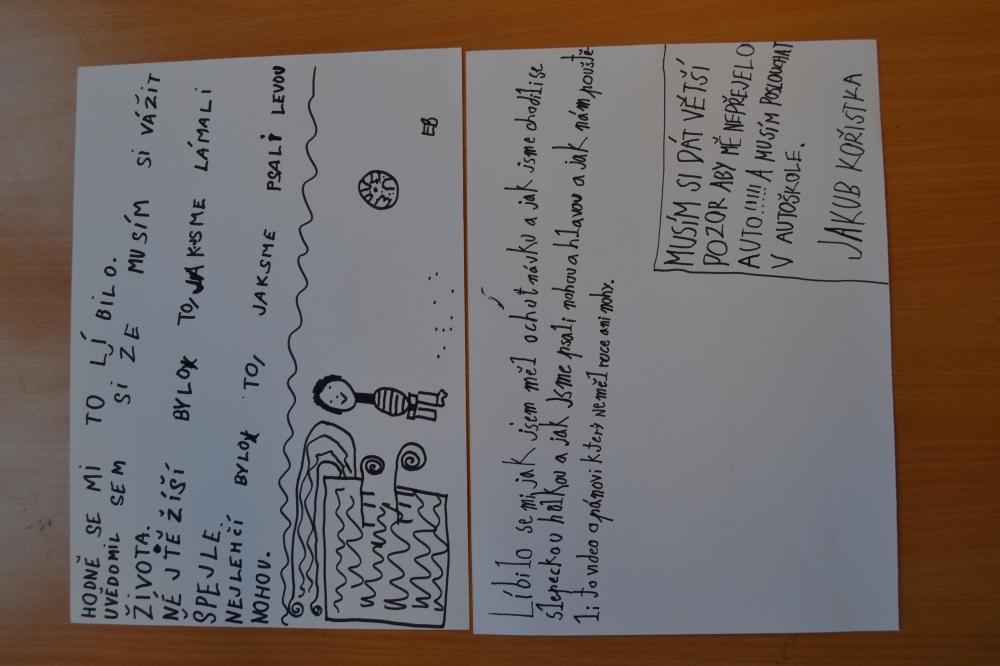 HODNĚ SE MI TO LÍBILO.
UVĚDOMIL SEM SI ŽE MUSÍM SI VÁŽIT
ŽIVOTA.
NÉJTĚŽIŠÍ BYLO TO, JAKSME LÁMALI
SPEJLE.
NEJLEHČÍ BYLO TO, JAKSME PSALI LEVOU
NOHOU.
EB
Líbilo se mi, jak jsem měl ochutnávku a jak jsme chodili se
slepeckou hůlkou a jak jsme psali nohou a hlavou a jak nám pouště-
li to video o pánovi který neměl ruce ani nohy.
MUSÍM SI DÁT VĚTŠÍ
POZOR ABY MĚ NEPŘEJELO
AUTO!!!!! A MUSÍM POSLOUCHAT
V AUTOŠKOLE.
JAKUB KOŘISTKA